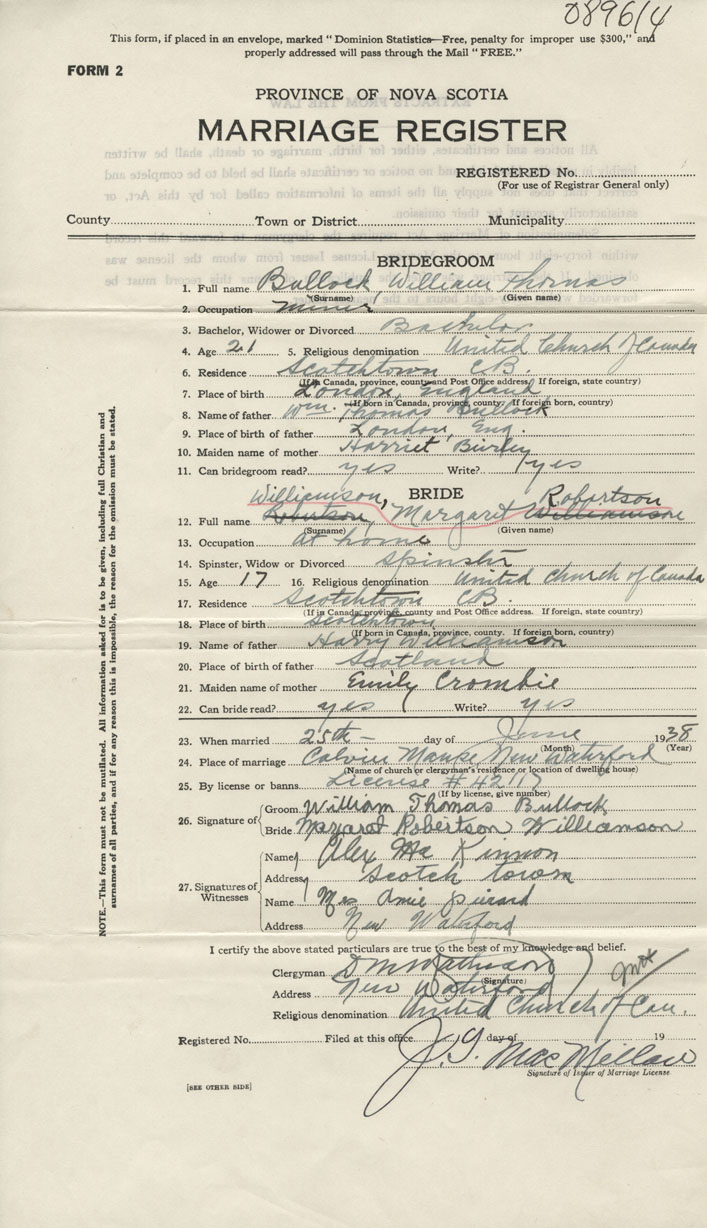 08964
This form, if placed in an envelope, marked "Dominion Statistics—Free, penalty for improper use $300," and
properly addressed will pass through the Mail "FREE."
FORM 2
PROVINCE OF NOVA SCOTIA
MARRIAGE REGISTER
REGISTERED No.
(For use of Registrar General only)
County Town or District Municipality
BRIDEGROOM
1. Full name Bullock, William Thomas
(Surname) (Given name)
2. Occupation miner
3. Bachelor, Widower or Divorced Bachelor
4. Age 21 5. Religious denomination United Church of Canada
6. Residence Scotchtown C.B.
(If in Canada, province, county and Post Office address. If foreign, state country)
7. Place of birth London, England
(If born in Canada, province, county. If foreign born, country)
8. Name of father Wm. Thomas Bullock
9. Place of birth of father London, Eng.
10. Maiden name of mother Harriet
11. Can bridegroom read? yes Write? yes
Williamson, BRIDE Robertson
12. Full name Robertson, Margaret Williamson
(Surname) (Given name)
13. Occupation at home
14. Spinster, Widow or Divorced Spinster
15. Age 17 16. Religious denomination United Church of Canada
17. Residence Scotchtown C.B.
(If in Canada, province, county and Post Office address. If foreign, state country)
18. Place of birth Scotchtown
(If born in Canada, province, county. If foreign born, country)
19. Name of father Harry Williamson
20. Place of birth of father Scotland
21. Maiden name of mother Emily Crombie
22. Can bride read? yes Write? yes
23. When married 25th day of June 1938
(Month) (Year)
24. Place of marriage Calvin Manse, New Waterford
(Name of church or clergyman's residence or location of dwelling house)
25. By license or banns License # 42117
(If by license, give number)
26. Signature of Groom William Thomas Bullock
Bride Margaret Robertson Williamson
27. Signatures of Witnesses
Name Alex Mc Kinnon
Address Scotch town
Name Mrs Amie
Address New Waterford
I certify the above stated particulars are true to the best of my knowledge and belief.
Clergyman D M Mathieson
(Signature)
Address New Waterford
Religious denomination United Church of Can.
Registered No. Filed at this office day of 19
J. G. MacMillan
Signature of Issuer of Marriage License
[SEE OTHER SIDE]
NOTE.—This form must not be mutilated. All information asked for is to be given, including full Christian and
surnames of all parties, and if for any reason this is impossible, the reason for the omission must be stated.